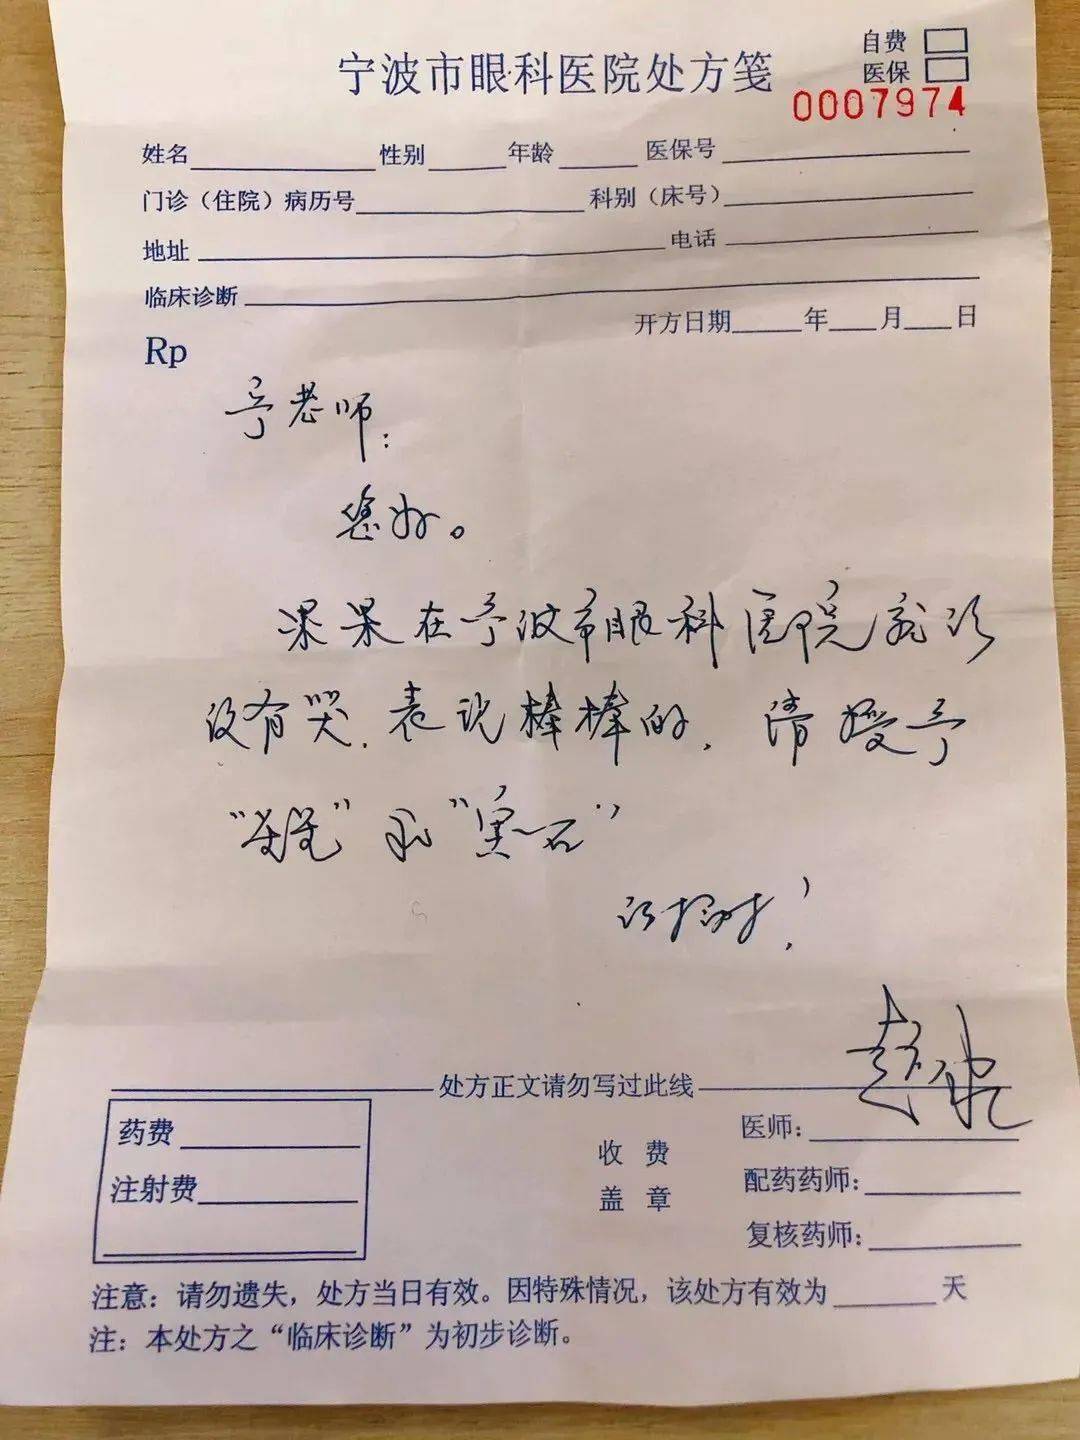 自费
宁波市眼科医院处方笺
医保
0007974
姓名 性别 年龄 医保号
门诊（住院）病历号 科别（床号）
地址 电话
临床诊断
开方日期 年 月 日
Rp
宁老师：
您好。
果果在宁波市眼科医院就诊
没有哭，表现棒棒的，请授予
和
处方正文请勿写过此线
药费
注射费
收费
盖章
医师：
配药药师：
复核药师：
注意：请勿遗失，处方当日有效。因特殊情况，该处方有效为 天
注：本处方之“临床诊断”为初步诊断。